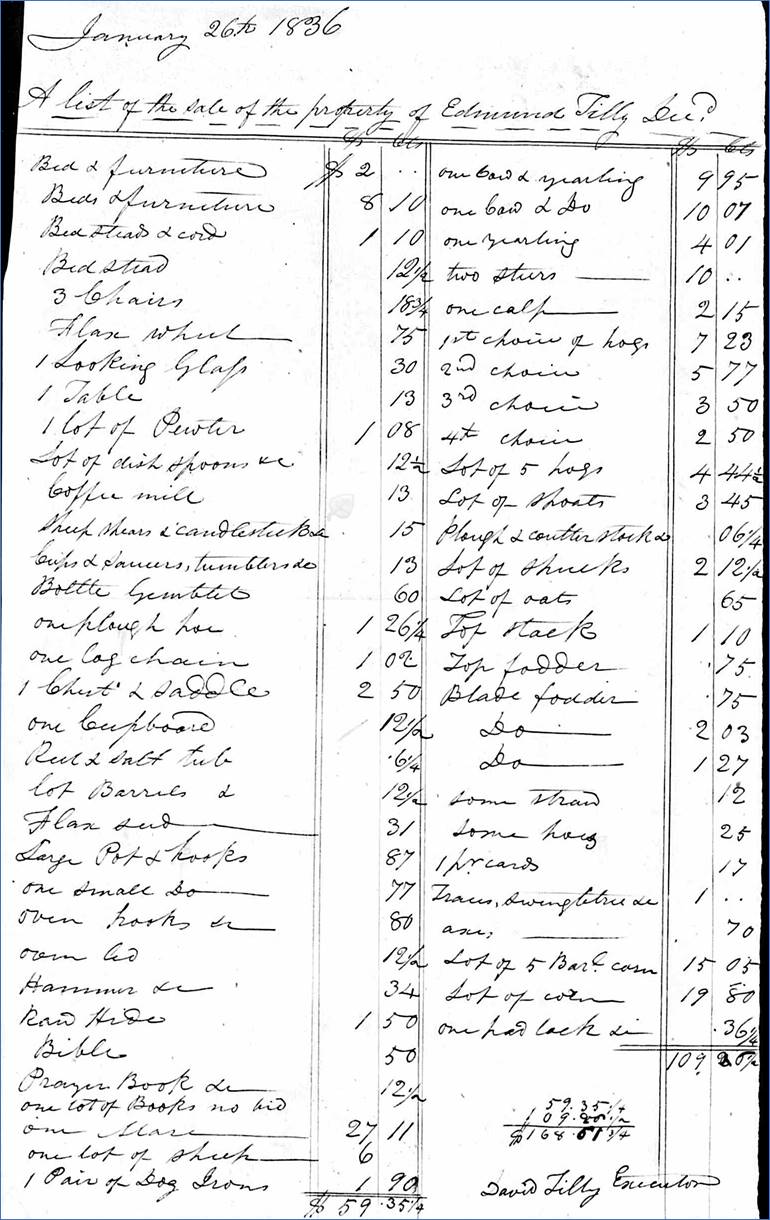 January 26th 1836
A list of the sale of the property of Edmund Tilly Decd
$ Cts
Bed & furniture $ 2 ..
Beds & furniture 8 10
Bed steads & cord 1 10
Bed stead 12½
3 Chairs 18¾
Flax wheel 75
1 Looking Glass 30
1 Table 13
1 lot of Pewter 1 08
Lot of dish spoons &c 12½
Coffee mill 13
Sheep shears & candlestick &c 15
Cups & saucers, tumblers &c 13
Bottle Gemblet 60
one plough hoe 1 26¼
one log chain 1 02
1 Chest & Saddle 2 50
one Cupboard 12½
Reel & salt tub .6¼
lot Barrels & 12½
Flax seed 31
Large Pot & hooks 87
one small Do 77
oven hooks &c 80
oven led 12½
Hammer &c 34
Raw Hide 1 50
Bible 50
Prayer Book &c 12½
one lot of Books no bid
one Mare 27 11
one lot of sheep 6
1 Pair of Dog Irons 1 90
$ 59.35¼
$ Cts
one Cow & yearling 9 95
one Cow & Do 10 07
one yearling 4 01
two steers 10 ..
one calf 2 15
1st choice of hogs 7 23
2nd choice 5 77
3rd choice 3 50
4th choice 2 50
Lot of 5 hogs 4 44½
Lot of shoats 3 45
Plough & coutter stock & 06¼
Lot of shucks 2 12½
Lot of oats 65
Top stack 1 10
Top fodder .75
Blade fodder .75
Do 2 03
Do 1 27
some straw 12
some hoes 25
1 pr cards 17
Traces, swingletree &c 1 ..
axe, 70
Lot of 5 Barl. corn 15 05
Lot of corn 19 80
one pad lock &c .36¼
109 20½
59.35¼
109.20½
$168.51¾
David Tilly Executor